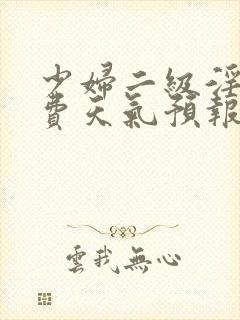 少婦二級淫
費天氣預報
雲我無心